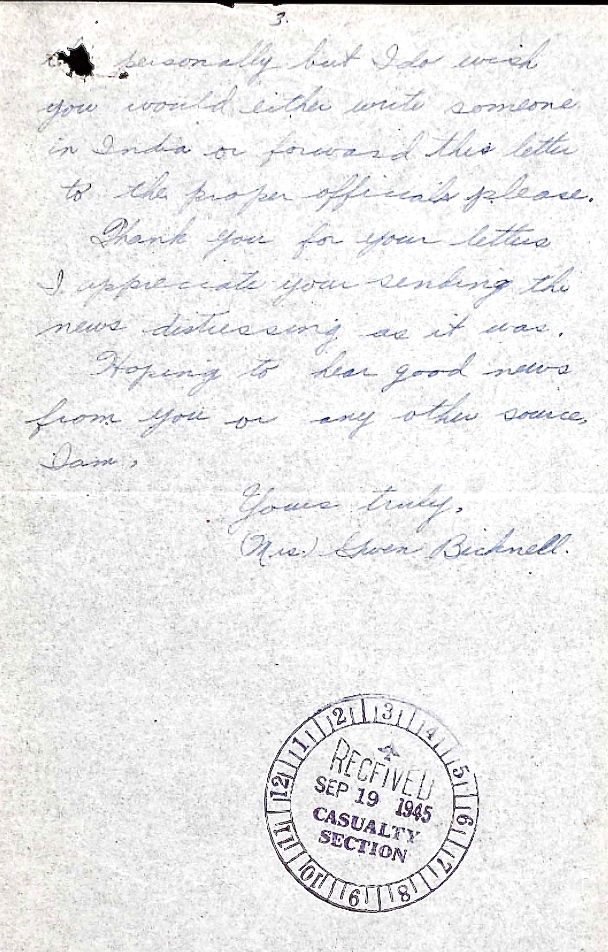 3.
personally but I do wish
you would either write someone
in India or forward this letter
to the proper officials please.
Thank you for your letters
I appreciate your sending the
news distressing as it was.
Hoping to hear good news
from you or any other source,
I am,
Yours truly,
(Mrs.) Gwen Bicknell.
1 2 3 4 5 6 7 8 9 10 11 12
RECEIVED
SEP 19 1945
CASUALTY
SECTION